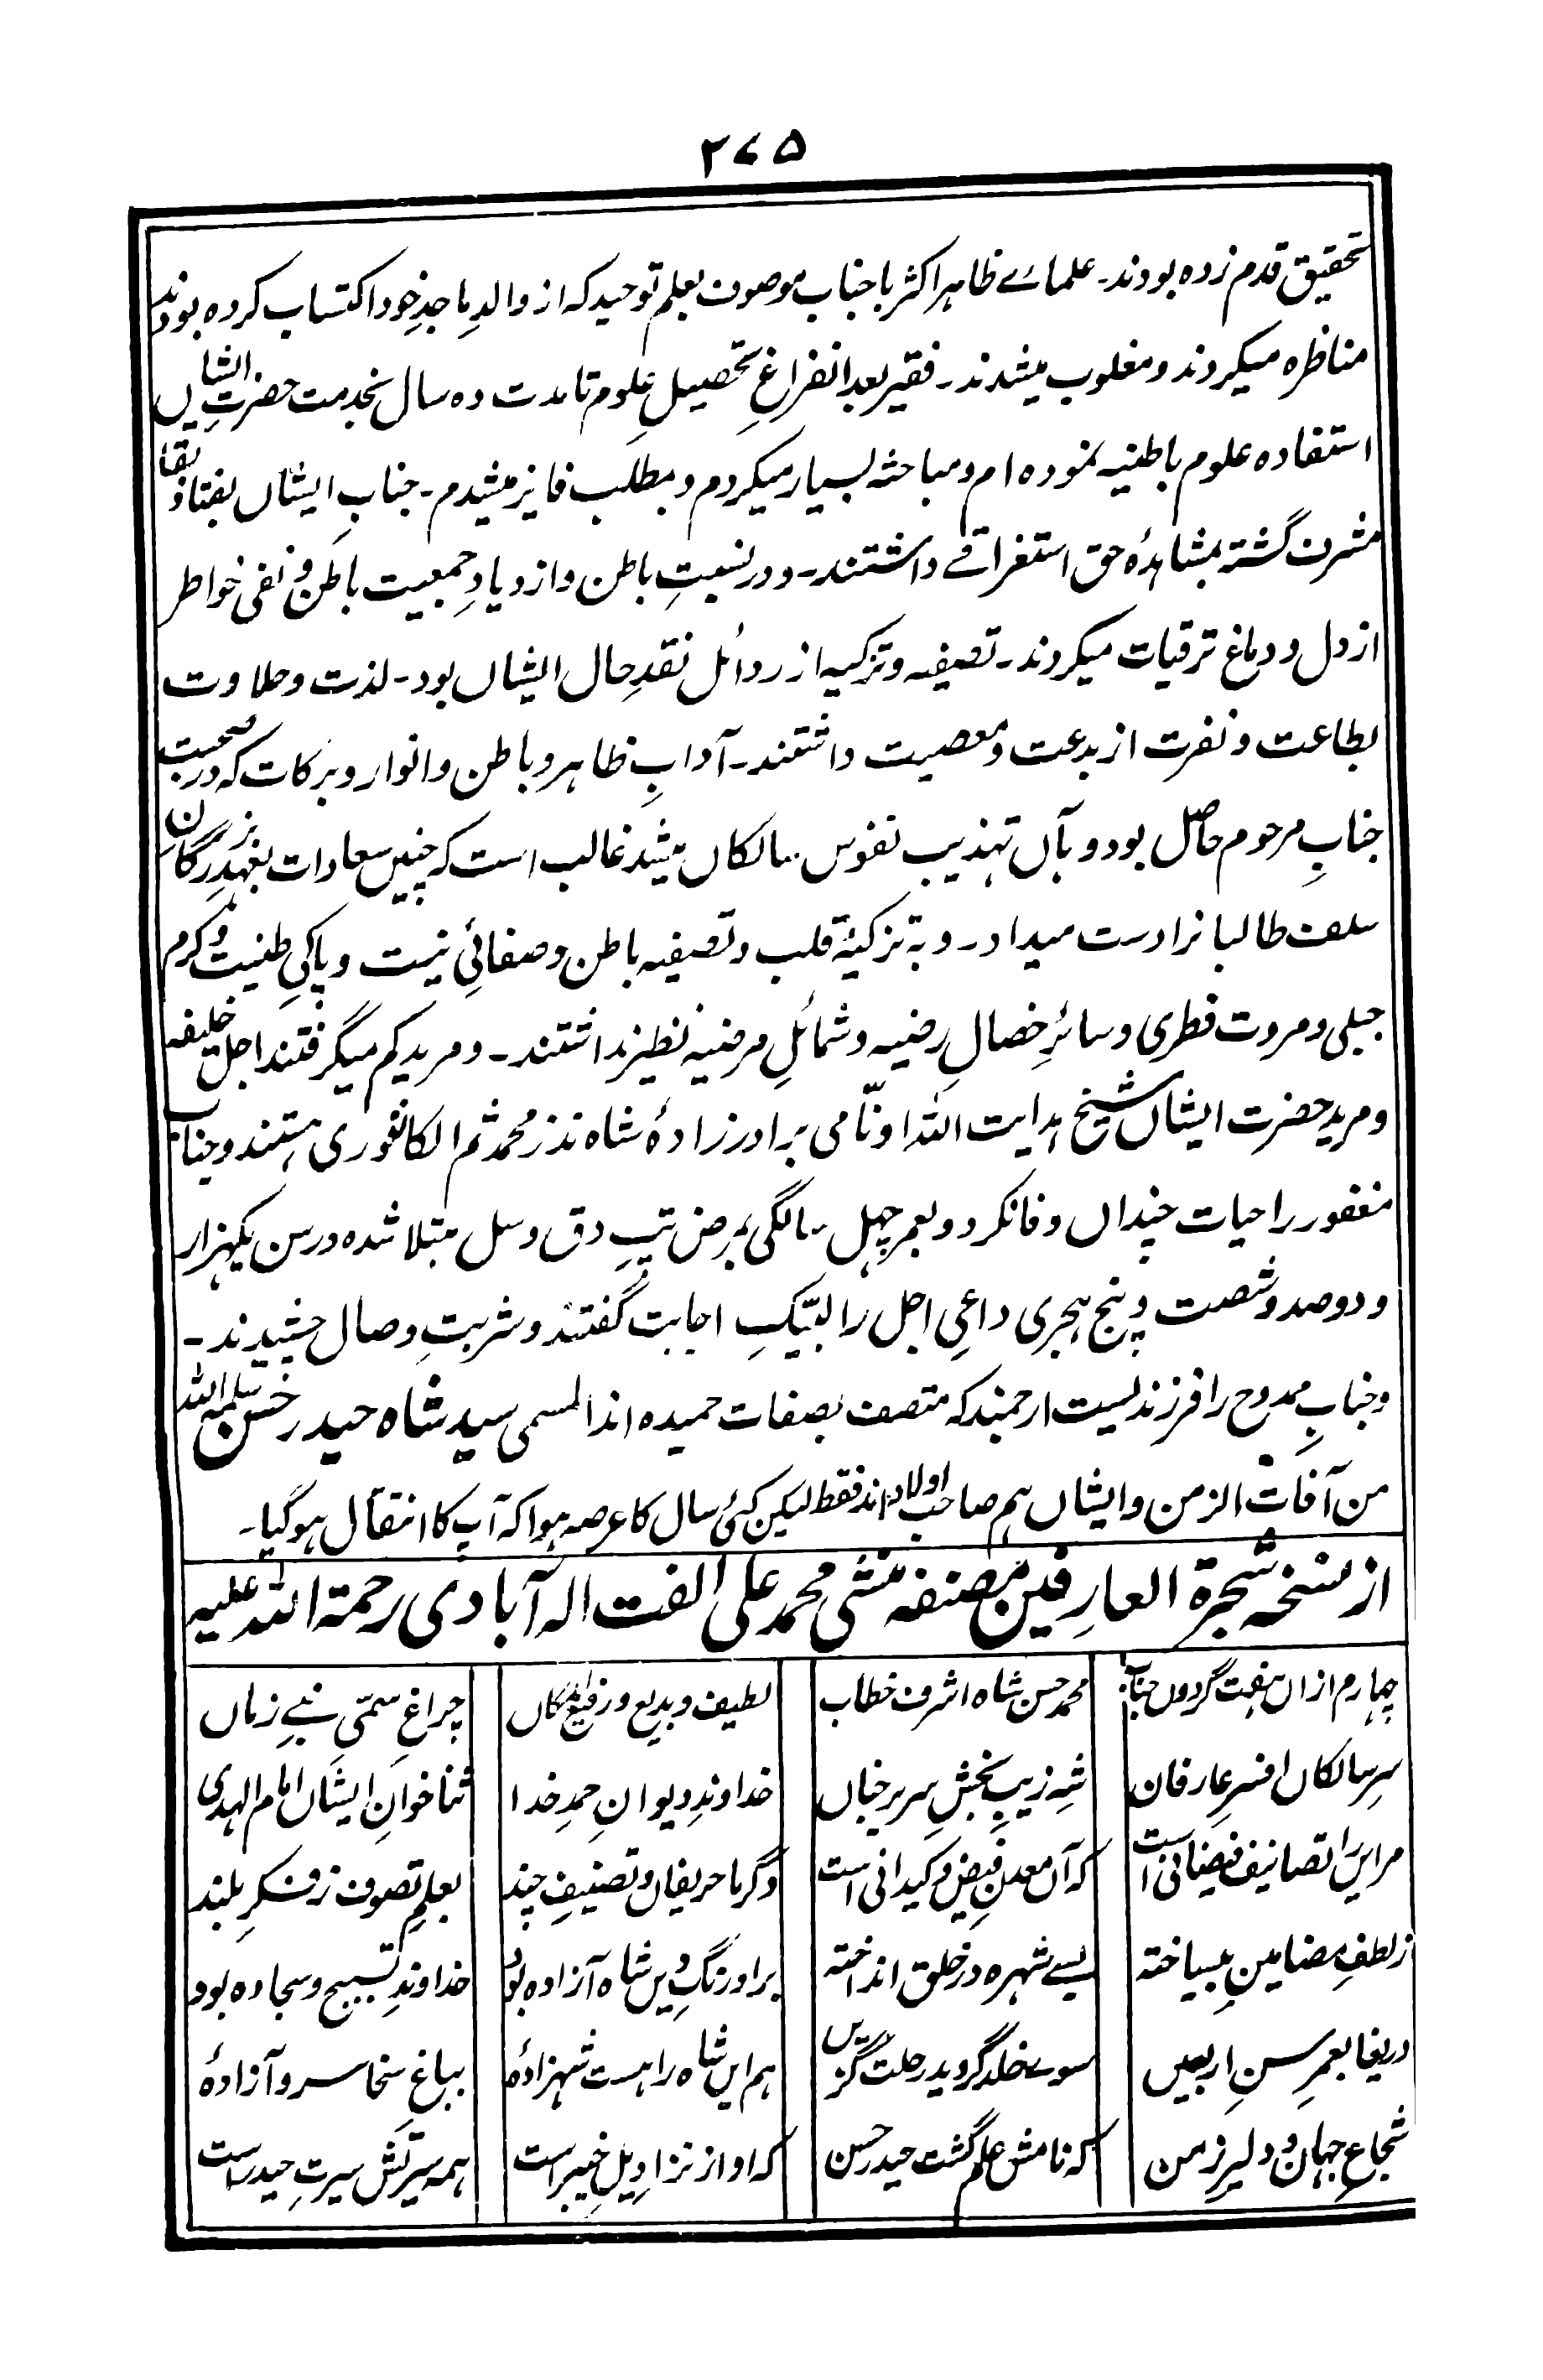 ۲۷۵
تحقیق قدم زده بودند۔ علمائے ظاہر اکثر با جناب موصوف بعلم توحید کہ از والدِ ماجدِ خود اکتساب کردہ بودند
مناظرہ میکردند و مغلوب میشدند۔ فقیر بعد انفراغِ تحصیلِ علوم تا مدت دہ سال بخدمت حضرتِ ایشاں
استفادہ علوم باطنیہ نمودہ ام و مباحثہ بسیار میکردم و بمطلب فایز میشدم۔ جنابِ ایشاں بفنا و بقا
مشرف گشتہ بمشاہدۂ حق استغراقے داشتند۔ و در نسبتِ باطن و ازدیادِ جمعیت باطن و نفی خواطر
از دل و دماغ ترقیات میکردند۔ تصفیہ و تزکیہ از ردائل نقدِ حال ایشاں بود۔ لذت و حلاوت
بطاعت و نفرت از بدعت و معصیت داشتند۔ آدابِ ظاہر و باطن و انوار و برکات کہ در صحبت
جنابِ مرحوم حاصل بود و بآں تہذیب نفوس سالکاں میشد غالب است کہ چنیں سعادات بعہدِ بزرگانِ
سلف طالبانرا دست میداد۔ و بہ تزکیۂ قلب و تصفیہ باطن و صفائیِ نیت و پاکیِ طنیت و کرم
جبلی و مروت فطری و سائرِ خصالِ رضیہ و شمائلِ مرضیہ نظیر نداشتند۔ و مرید کم میگرفتند اجل خلیفہ
و مرید حضرت ایشاں شیخ ہدایت اللہ اونّامی برادرزادۂ شاہ نذر محمد ثم الکانفوری ہستند و جناب
مغفور را حیات چنداں وفا نکرد و بعمر چہل سالگی بمرض تپِ دق و سل مبتلا شدہ در سن یکہزار
و دو صد و شصت و پنج ہجری داعیِ اجل را لبّیکِ اجابت گفتند و شربتِ وصال چشیدند۔
و جنابِ ممدوح را فرزندیست ارجمند کہ متصف بصفات حمیدہ اند المسمی سید شاہ حیدر حسن سلمہ اللہ
من آفات الزمن و ایشاں ہم صاحب اولاد اند فقط لیکن کئی سال کا عرصہ ہوا کہ آپ کا انتقال ہوگیا۔
از نسخہ شجرۃ العارفین مصنفہ منشی محمد علی الفت الہ آبادی رحمۃ اللہ علیہ
چہارم ازاں ہفت گردوں جناب محمد حسن شاہ اشرف خطاب لطیف و بدیع و رفیع المکاں چراغِ سمّیِ نبیِ زماں
سرِ سالکاں افسرِ عارفاں شہِ زیب بخشِ سریرِ جناں خداوندِ دیوانِ حمدِ خدا ثناخوانِ ایشاں امام الہدی
مر ایں را تصانیف فیضانی است کہ آں معدنِ فیض و کیدانی است دگر ما حریفاں و تصنیفِ چند بعلمِ تصوف ز فکرِ بلند
ز لطفِ مضامینِ بیساختہ بسے شہرہ در خلق انداختہ بر اورنگِ دیں شاہ آزادہ بود خداوندِ تسبیح و سجادہ بود
دریغا بعمرِ سنِ اربعیں سوے خلد گردید رحلت گزیں ہم ایں شاہ را ہست شہزادۂ بباغِ سخا سرو آزادۂ
شجاعِ جہان و دلیرِ زمن کہ نامش علم گشت حیدر حسن کہ او از نژادِ یلِ خیبر است ہمہ سیرتش سیرتِ حیدر است